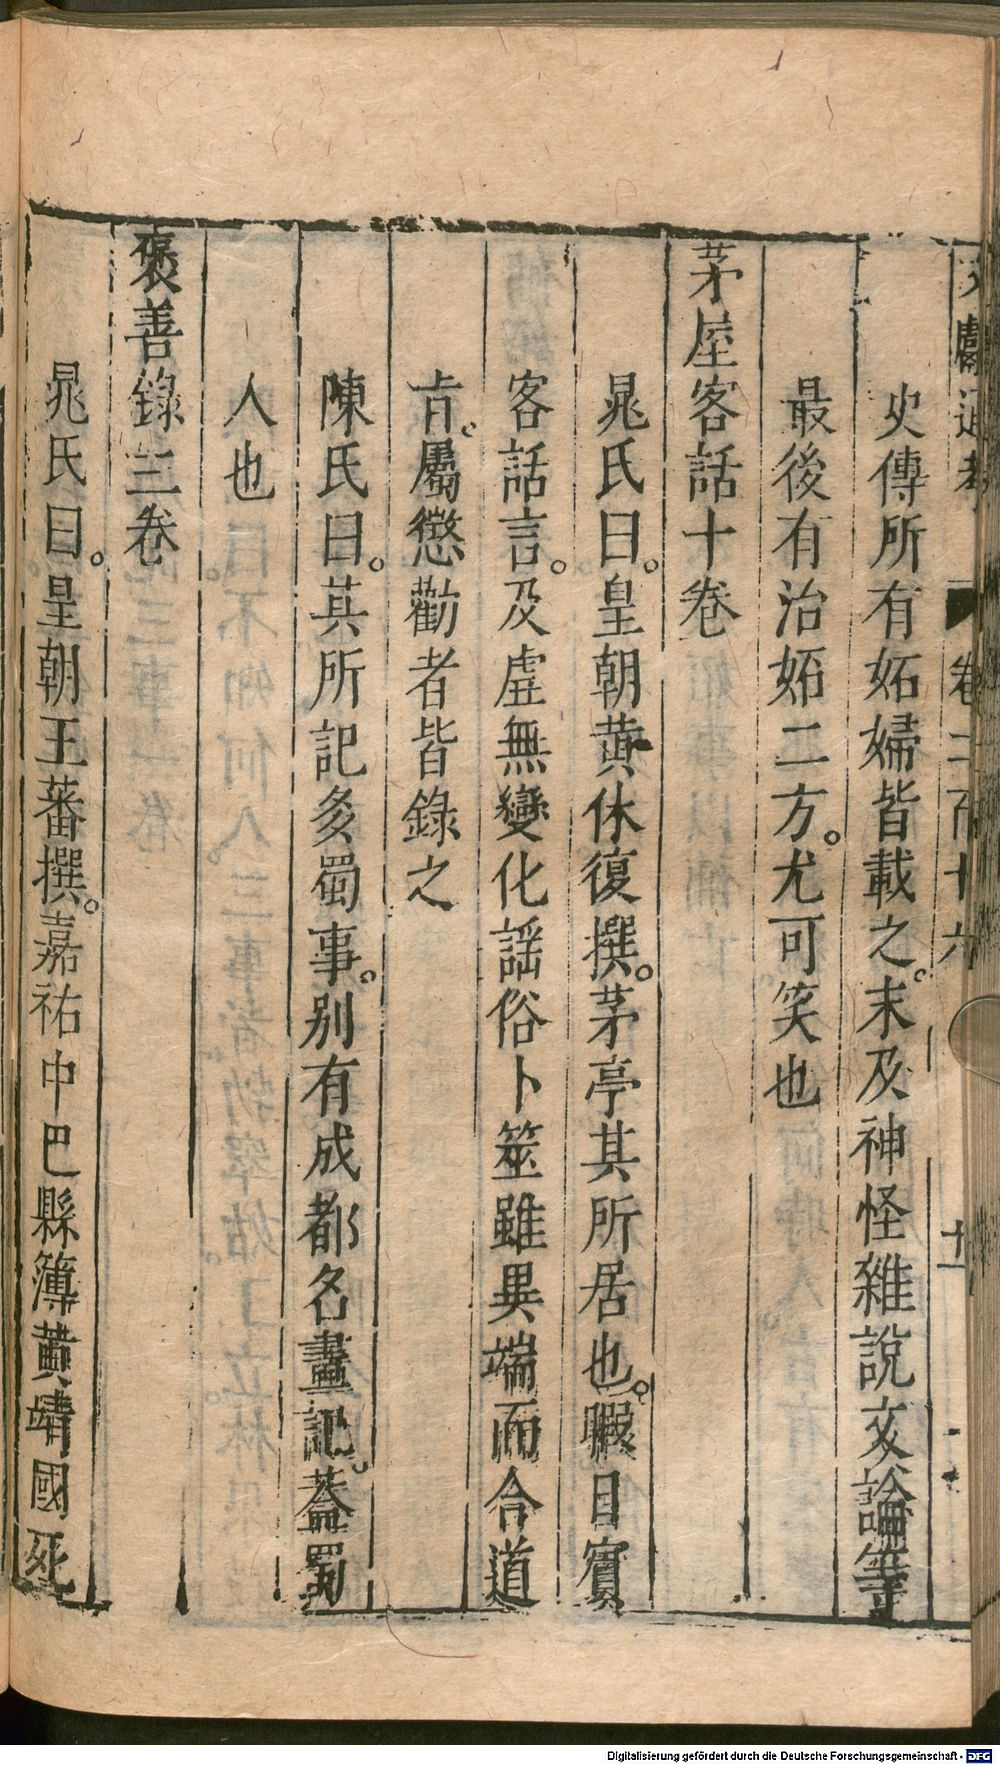 文獻通考 卷二百十六 十一
史傳所有妬婦皆載之。末及神怪雜說文論等
最後有治妬二方。尤可笑也
茅屋客話十卷
晁氏曰。皇朝黄休復撰。茅亭其所居也。暇日賓
客話言。及虛無變化謡俗卜筮雖異端而合道
㫖。屬懲勸者皆錄之
陳氏曰。其所記多蜀事。别有成都名畫記。葢蜀
人也
褒善錄三卷
晁氏曰。皇朝王蕃撰。嘉祐中巴縣簿黄靖國死
Digitalisierung gefördert durch die Deutsche Forschungsgemeinschaft - DFG